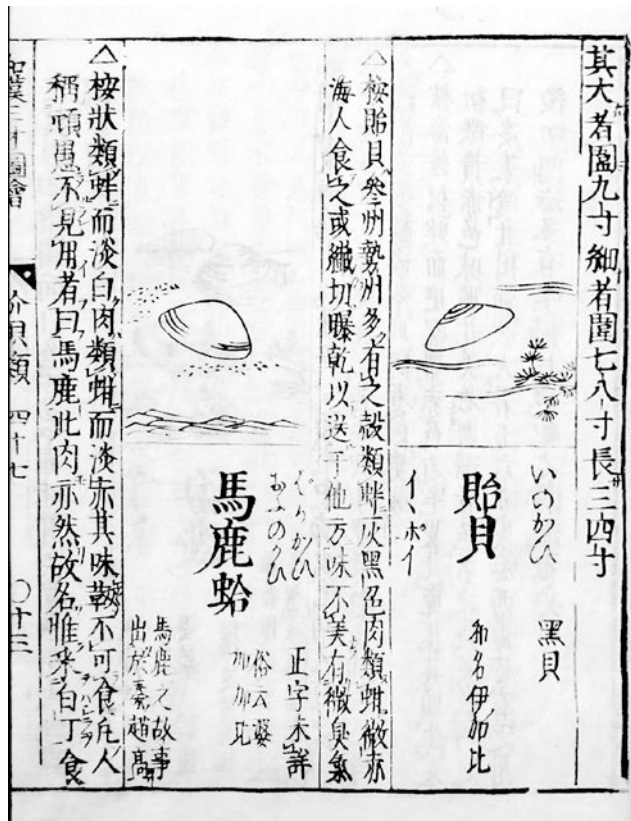 其大者圍九寸細者圍七八寸長三四寸
いのかひ
黑貝
貽貝
和名伊加比
イヽボイ
△按貽貝參州勢州多有之殼類蚌灰黑色肉類蚶微赤
海人食之或纎切曝乾以送于他方味不美有微臭氣
ばかかひ
おふのかひ
正字未詳
馬鹿蛤
俗云婆
加加比
馬鹿之故事
出於秦趙高
△按狀類蚌而淡白肉類蚶而淡赤其味 不可食凡人
稱頑愚不見用者曰馬鹿此肉亦然故名惟乎白丁食
和漢三才圖會
介貝類 四十七
○十三